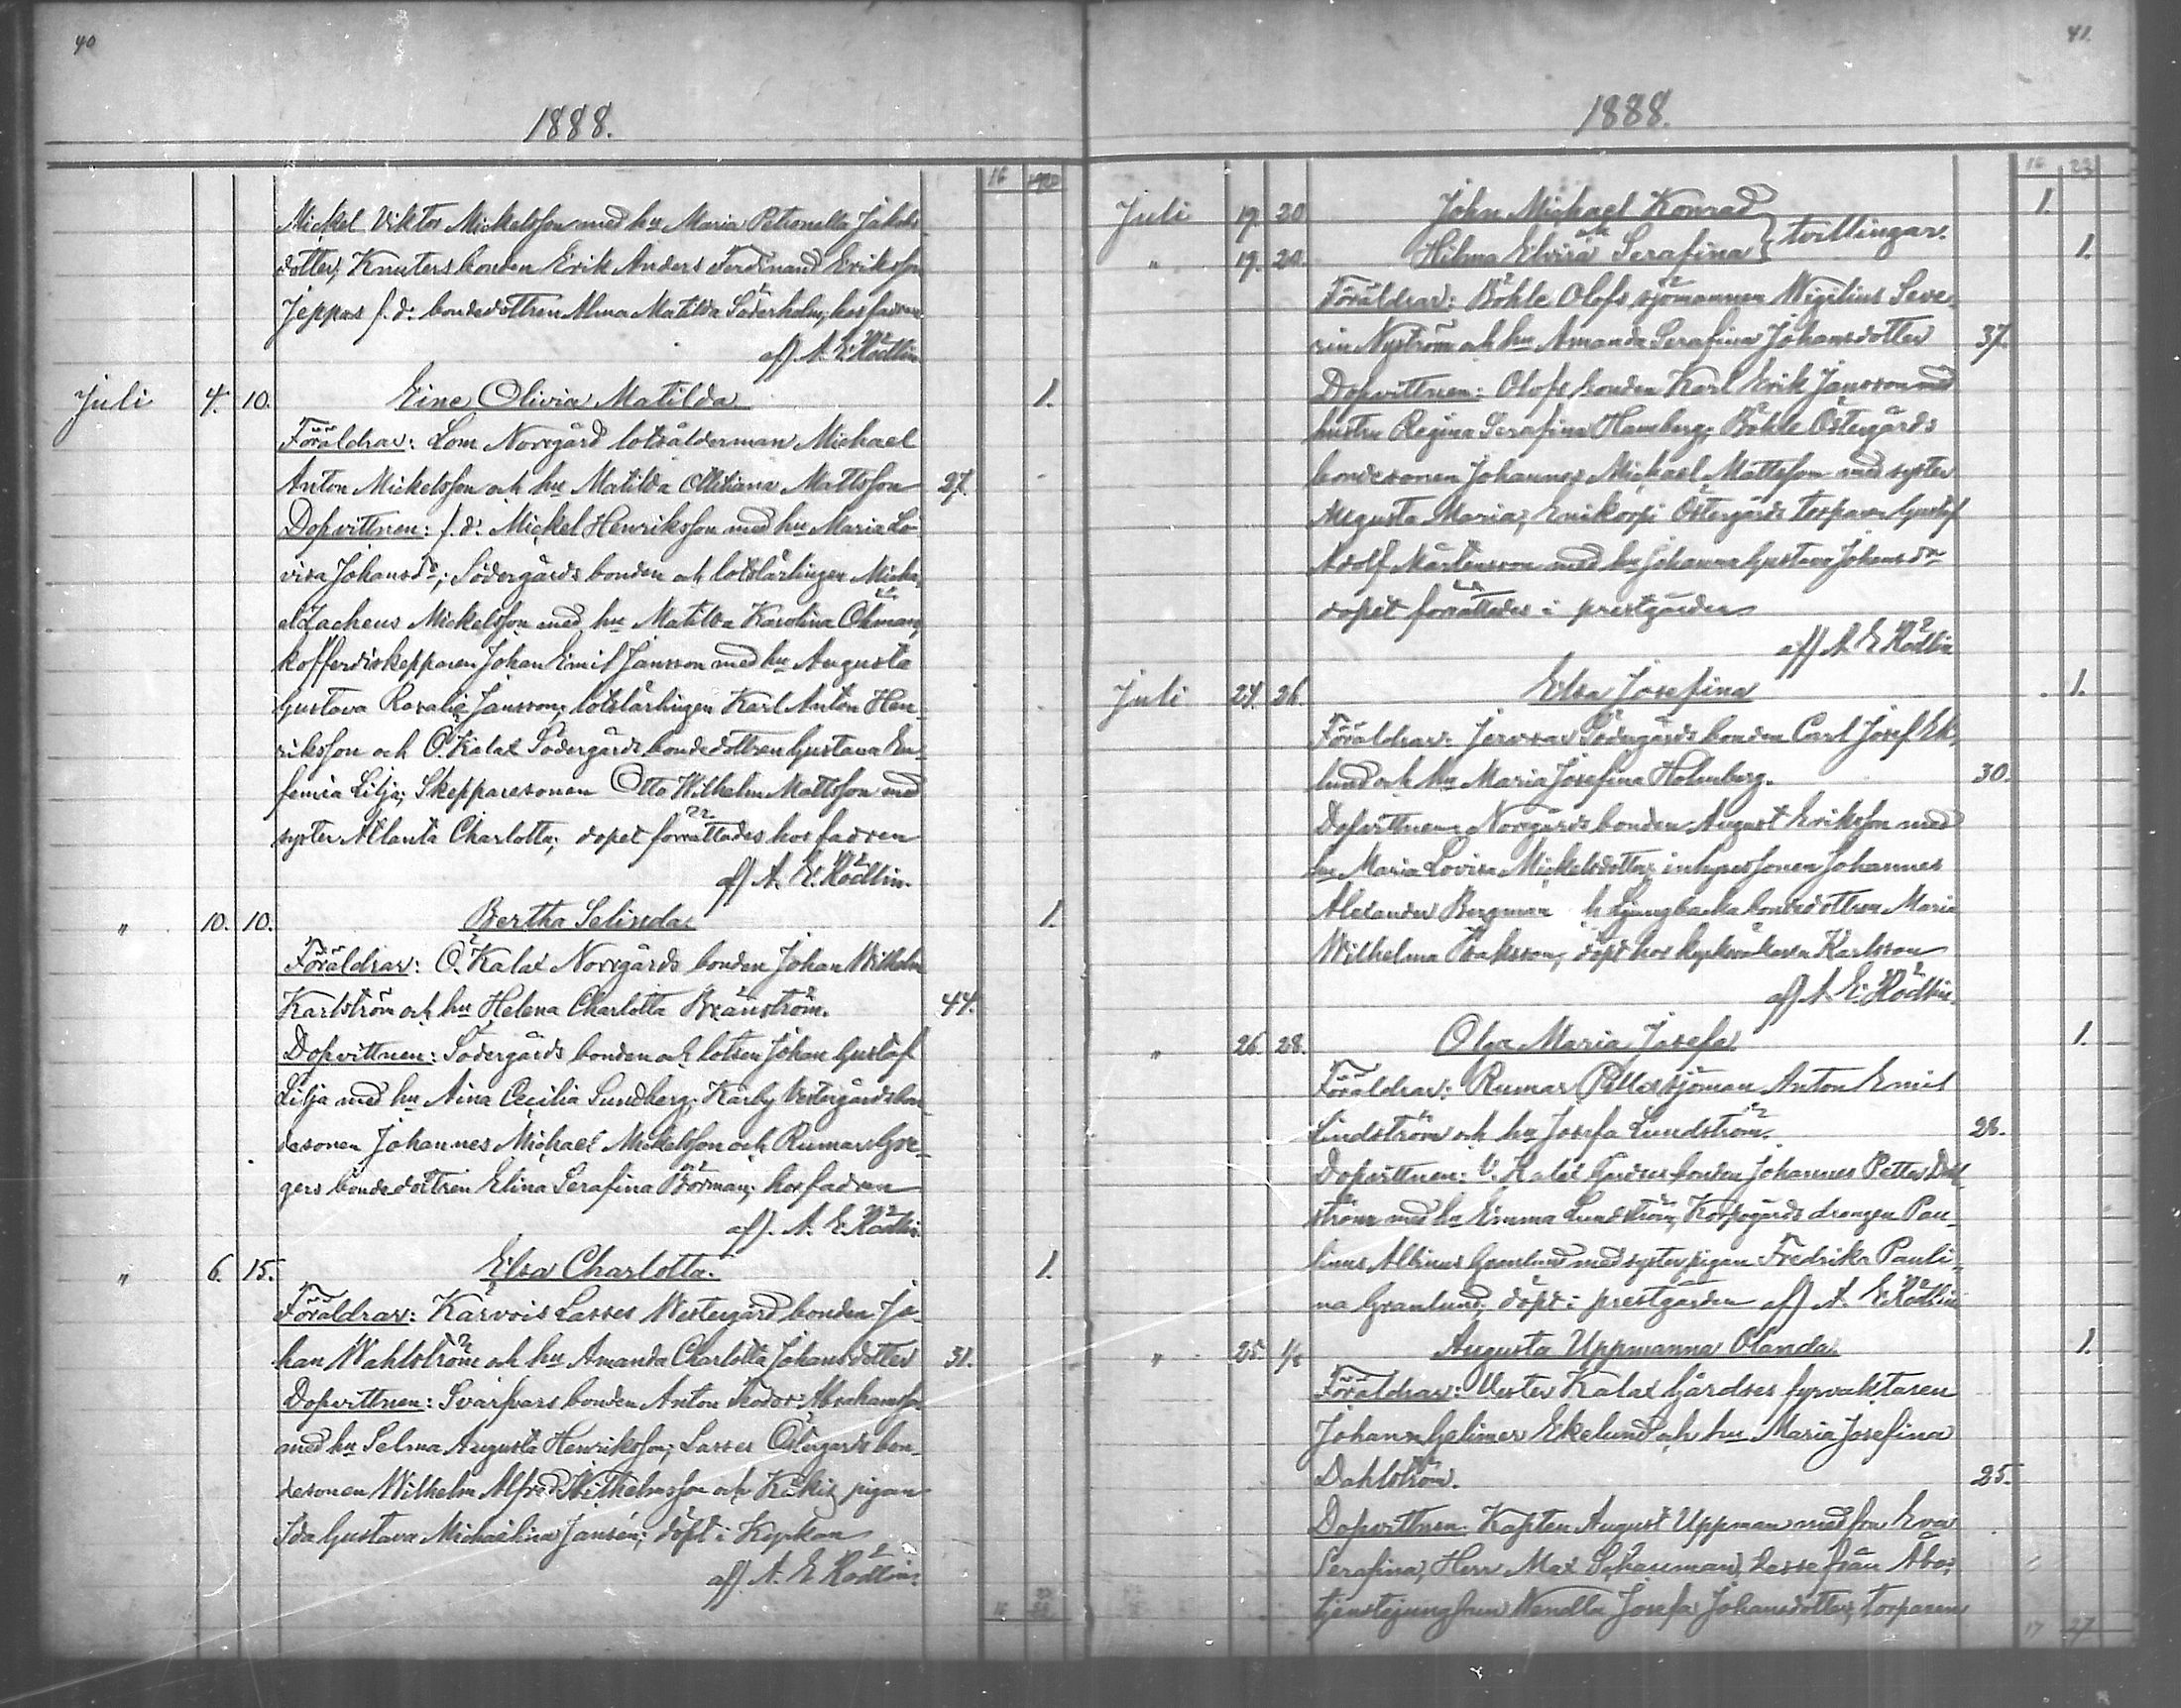 40
1888.
16
Mickel Viktor Mickelsson med hu Maria Petronella Jakobs-
dotter; Knuters bonden Erik Anders Ferdinand Eriksson
Jeppas f.d. bondedottren Alma Matilda Söderholm; hos fadren
af A. E. Rödlin
Juli 4. 10. Eine Olivia Matilda 1.
Föräldrar: Lom Norrgård lotsålderman Michael
Anton Mickelsson och hu Matilda Mattsson 27.
Dopvittnen: f.d. Mickel Henriksson med hu Maria Lo-
visa Johansdr; Södergårds bonden och lotslärlingen Micha-
el Zacheus Mickelsson med hu Matilda Karolina Öhman,
kofferdiskepparen Johan Emil Jansson med hu Augusta
Gustava Rosalie Jansson; lotslärlingen Karl Anton Hen-
riksson och Ö. Kalax Södergårds bondedottren Gustava Eu-
femia Lilja; Skepparesonen Otto Wilhelm Mattsson med
syster Atlanta Charlotta; dopet förrättades hos fadren
af A. E. Rödlin.
" 10. 10. Bertha Selinda 1.
Föräldrar: Ö. Kalax Norrgårds bonden Johan Wilhelm
Karlström och hu Helena Charlotta Brännström. 44.
Dopvittnen: Södergårds bonden och lotsen Johan Gustaf
Lilja med hu Aina Cecilia Sundberg; Kärby Vestergårds bon-
desonen Johannes Michael Mickelsson och Rumar Gre-
gers bondedottren Elina Serafina Börman; hos fadren
af. A. E. Rödlin.
" 6. 15. Elsa Charlotta. 1.
Föräldrar: Kärvois Lasses Westergård bonden Jo-
han Wahlström och hu Amanda Charlotta Johansdotter 31.
Dopvittnen: Svarfvars bonden Anton Teodor Abrahamsson
med hu Selma Augusta Henriksson; Lasses Östergårds bon-
desonen Wilhelm Alfred Wilhelmsson och pigan
Ida Gustava Michaelina Jansén; döpt i Kyrkan
af. A. E. Rödlin.
41.
1888.
16 23
Juli 19. 20 John Michael Konrad 1.
och tvillingar.
" 19. 20. Hilma Elvira Serafina 1.
Föräldrar: Böhle Olofs sjömannen Wigilius Seve-
rin Nyström och hu Amanda Serafina Johansdotter 37.
Dopvittnen: Olofs bonden Karl Erik Jansson med
hustru Regina Serafina Hamberg; Böhle Östergårds
bondesonen Johannes Michael Mattsson med syster
Augusta Maria; Östergårds torparen Gustaf
Adolf Mårtensson med hu Johanna Gustava Johansdr
dopet förrättades i prestgården
af A. E. Rödlin
Juli 24. 26. Elsa Josefina 1.
Föräldrar: Södergårds bonden Carl Josef Ek-
lund och hu Maria Josefina Holmberg. 30.
Dopvittnen: Norrgårds bonden August Eriksson med
hu Maria Lovisa Mickelsdotter; inhysessonen Johannes
Alexander Bergman Ljungbacka bondedottren Maria
Wilhelmina Isaksson; döpt hos kyrkväktaren Karlsson
af A. E. Rödlin.
" 26. 28. Olga Maria Josefa 1.
Föräldrar: Rumar Pellas sjöman Anton Emil
Lindström och hu Josefa Lundström. 28.
Dopvittnen: V. Kalax bonden Johannes Petter Dahl-
ström med hu Emma Lundström, Korpogårds drängen Pau-
linus Albinus Granlund med syster pigan Fredrika Pauli-
na Granlund; döpt i prestgården af A. E. Rödlin
" 25. 1/8 Augusta Uppmanna Olanda. 1.
Föräldrar: Vester Kalax Gårdses fyrvaktaren
Johann Gelimer Ekelund och hu Maria Josefina
Dahlström. 25.
Dopvittnen: Kapten August Uppman med fru Eva
Serafina, Herr Max Schauman, desse från Åbo;
tjenstejungfrun Wendla Josefa Johansdotter; torparen
17 27